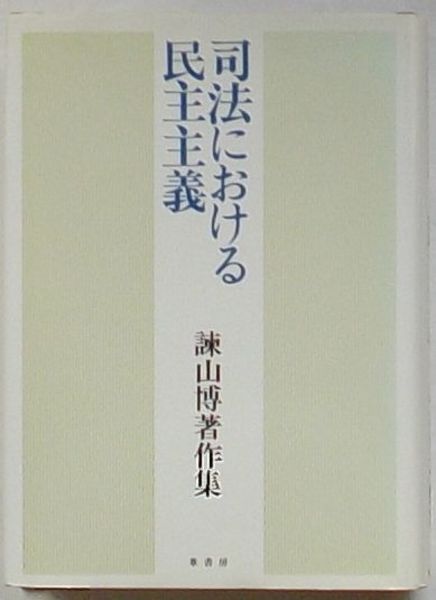 司法における
民主主義
諫山博著作集
葦書房